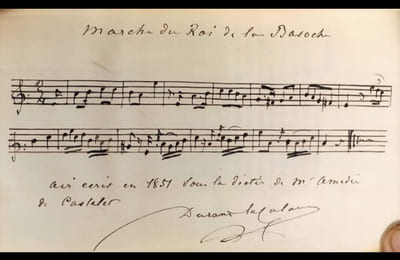 Marche du Roi de la Basoche
air ecris en 1851 sous la dictée de Mr Amédée
de Castelet
Durand